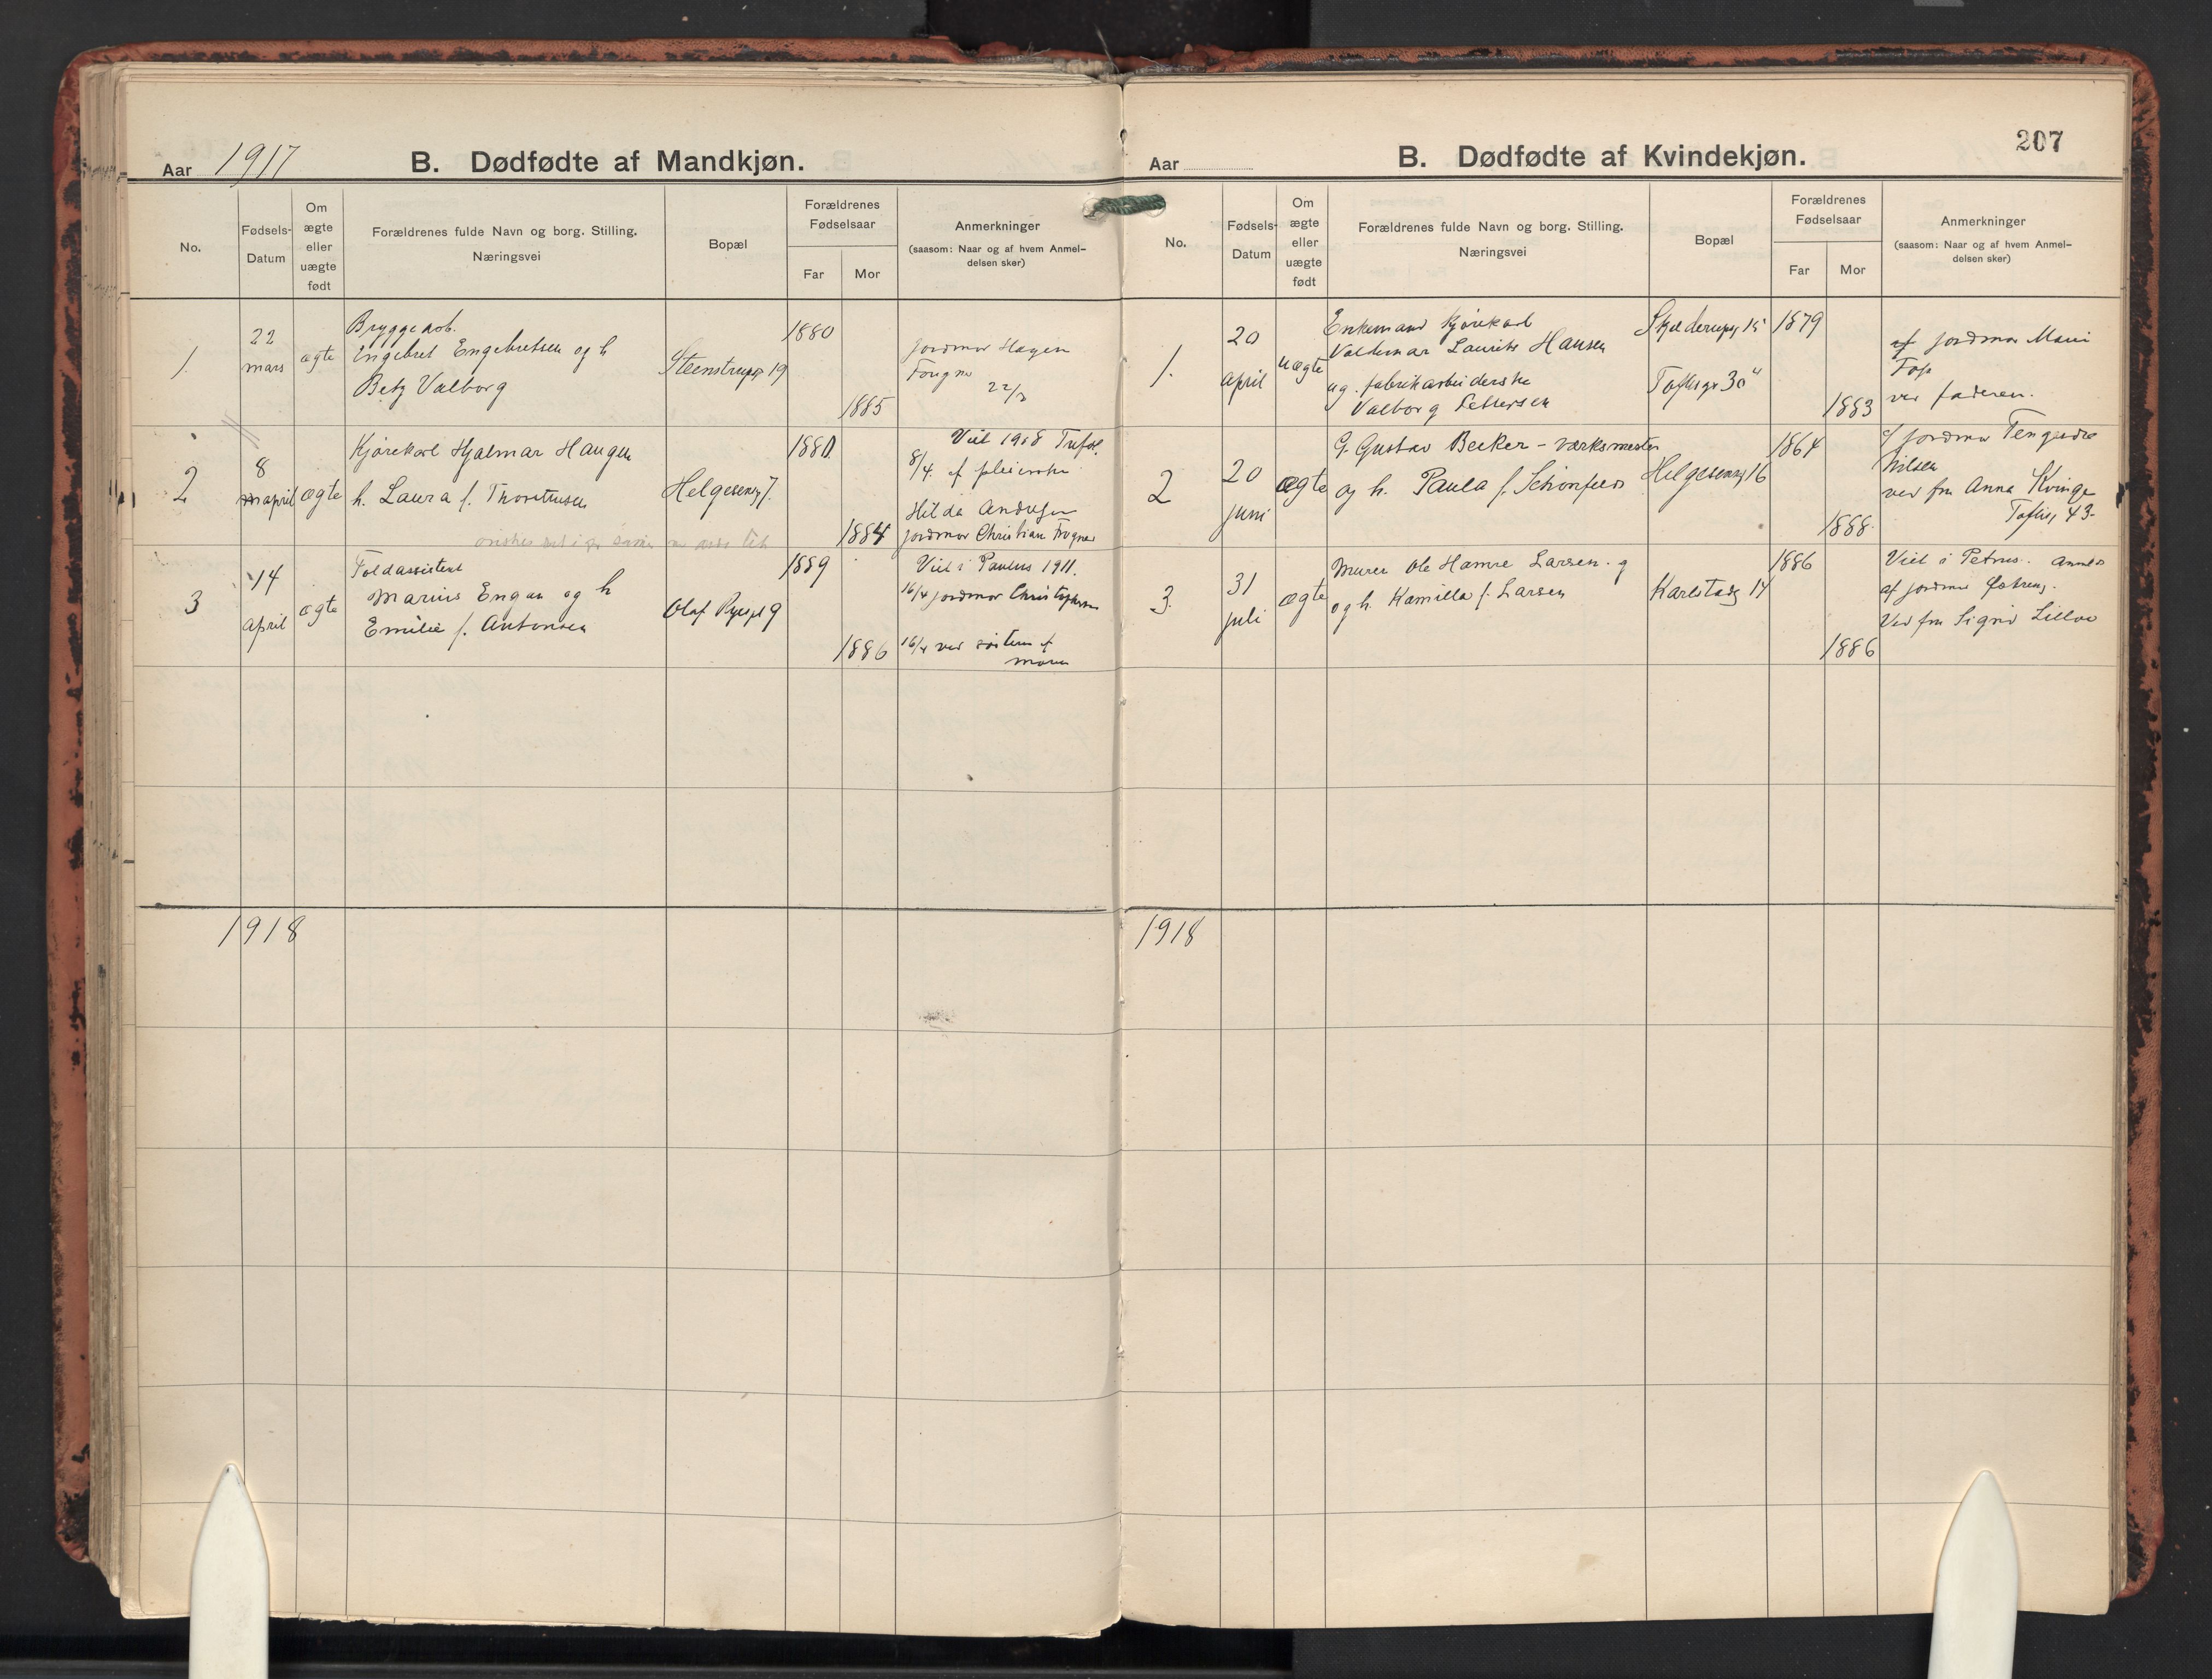 Aar 1917
B. Dødfødte af Mandkjøn.
No.
Fødsels-
Datum
Om
ægte
eller
uægte
født
Forældrenes fulde Navn og borg. Stilling.
Næringsvei
Bopæl
Forældrenes
Fødselsaar
Far
Mor
Anmerkninger
(saasom: Naar og af hvem Anmel-
delsen sker)
1.
22
mars
ægte
Bryggearb.
Engebret Engebretsen og h
Betzy Valborg
Steenstrupg 19
1880
1885
Jordmor Hagen
Fougner
22/3
2
8
april
ægte
Kjørekarl Hjalmar Haugen
h. Laura f.
Helgeseng 7.
1880.
1884
Viet 1908 Trefol.
8/4. af pleierske
Hilda Andersen
jordmor Christian Frogner
3
14
april
ægte
Toldassistent
Marius Engan og h
Emilie f. Antonsen
Olaf Ryespl 9
1889
1886
Viet i Paulus 1911.
16/4 jordmor
16/4 ved søsteren af
moren
1918
207
Aar
B. Dødfødte af Kvindekjøn.
No.
Fødsels-
Datum
Om
ægte
eller
uægte
født
Forældrenes fulde Navn og borg. Stilling.
Næringsvei
Bopæl
Forældrenes
Fødselsaar
Far
Mor
Anmerkninger
(saasom: Naar og af hvem Anmel-
delsen sker)
1.
20
april
uægte
Enkemand Kjørekarl
Valdemar Laurits Hansen
ug. fabrikarbeiderske
Valborg Pettersen
Skjelderupsg 15
Toftesgt 30
1879
1883
af jordmor Marie
Foss
ved faderen.
2
20
juni
ægte
G. Gustav Becker - værksmester
og h. Paula f. Schönfeld
Helgeseng 16
1864
1888.
af jordmor
Nilsen
ved fru Anna Kvinge
Toftesg 43.
3.
31
juli
ægte
Murer Ole Hamre Larsen. g
og h. Kamilla f. Larsen
Karlstadg 14
1886
1886
Viet i Petrus. Anmeld
af jordmor
Ved fru Sigrid
1918